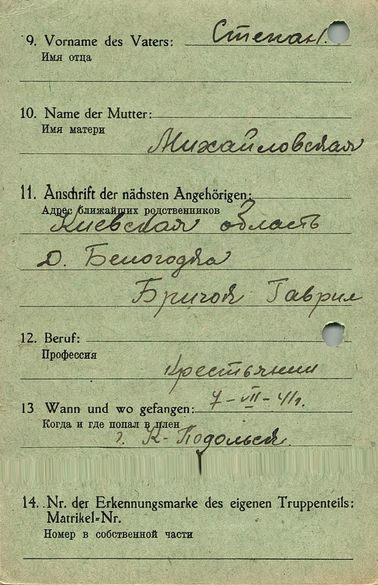 9. Vorname des Vaters: Степан.
Имя отца
10. Name der Mutter:
Имя матери
Михайловская
11. Anschrift der nächsten Angehörigen:
Адрес ближайших родственников
Киевская область
д. Белогодка
Бригой Гаврил
12. Beruf:
Профессия
крестьянин
13 Wann und wo gefangen: 7-VII-41г.
Когда и где попал в плен
г. К-Подольск.
14. Nr. der Erkennungsmarke des eigenen Truppenteils:
Matrikel-Nr.
Номер в собственной части